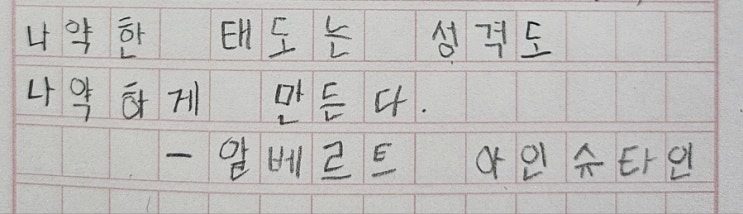 나약한 태도는 성격도
나약하게 만든다.
- 알베르트 아인슈타인